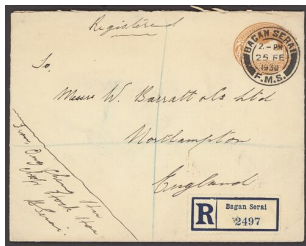 Registered
BAGAN SERAI
2 - PM
25 FE
1930
F.M.S.
To,
Messrs W. Barratt & Co Ltd
Northampton
England
From,
R
Bagan Serai
2497